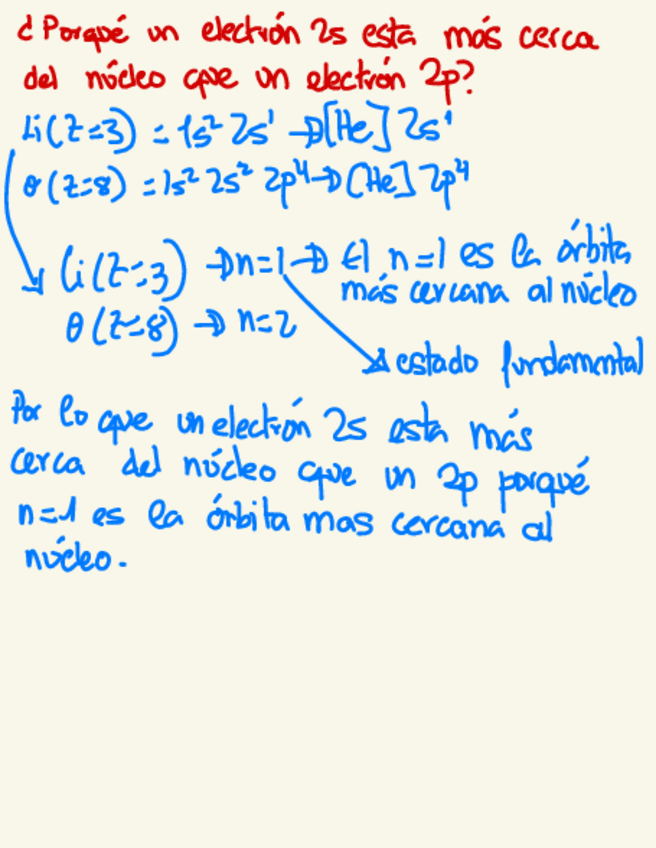 ¿Porqué un electrón 2s esta más cerca
del núcleo que un electrón 2p?
Li(Z=3) = 1s² 2s¹ → [He] 2s¹
O(Z=8) = 1s² 2s² 2p⁴ → [He] 2p⁴
Li(Z=3) → n=1 → El n=1 es la órbita
más cercana al núcleo
O(Z=8) → n=2
estado fundamental
Por lo que un electrón 2s esta más
cerca del núcleo que un 2p porqué
n=1 es la órbita mas cercana al
núcleo.